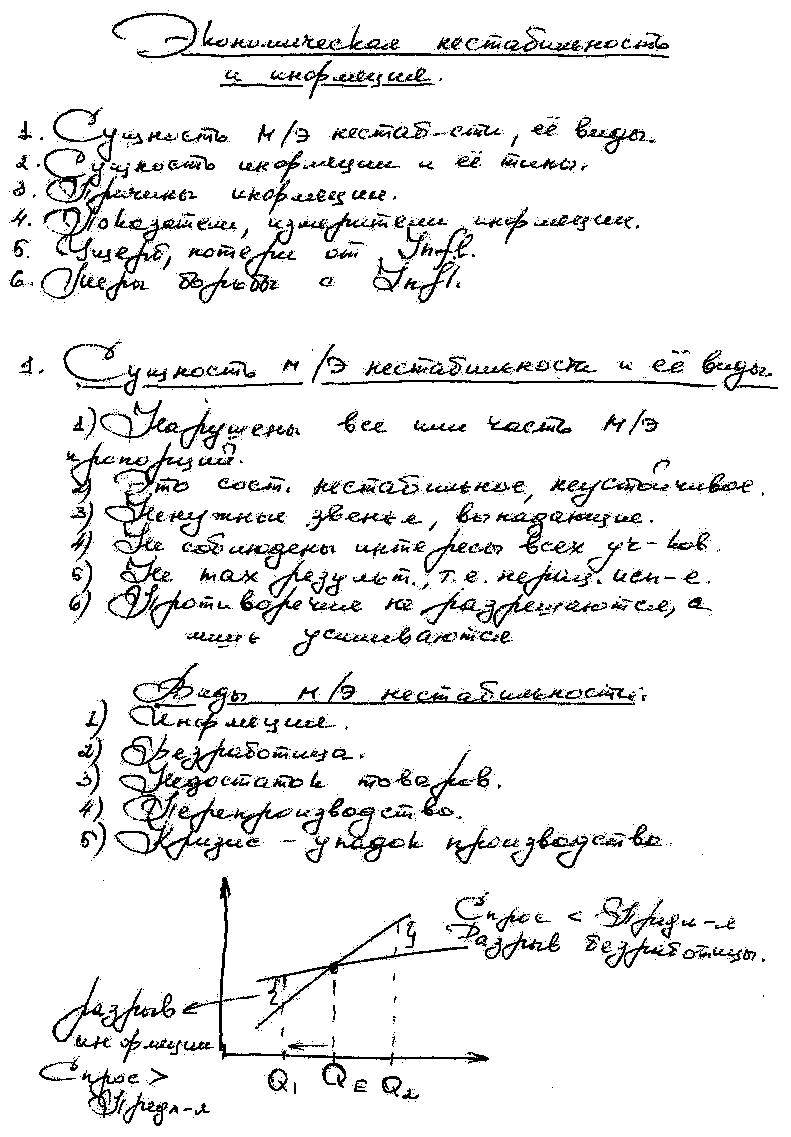 Экономическая нестабильность
и инфляция.
1. Сущность М/Э нестаб-сти, её виды.
2. Сущность инфляции и её типы.
3. Причины инфляции.
4. Показатели, измерители инфляции.
5. Ущерб, потери от Infl.
6. Меры борьбы с Infl.
1. Сущность М/Э нестабильности и её виды.
1) Нарушены все или часть М/Э
пропорций.
2) Это сост. нестабильное, неустойчивое.
3) Ненужные звенья, выпадающие.
4) Не соблюдены интересы всех уч-ков.
5) Не max результ., т.е. нерац. исп-е.
6) Противоречие не разрешаются, а
лишь усиливаются
Виды М/Э нестабильности:
1) Инфляция.
2) Безработица.
3) Недостаток товаров.
4) Перепроизводство.
5) Кризис - упадок производства
Спрос < Предл-я
Разрыв безработицы.
разрыв
инфляции
Спрос >
Предл-я
Q1 QE Q2